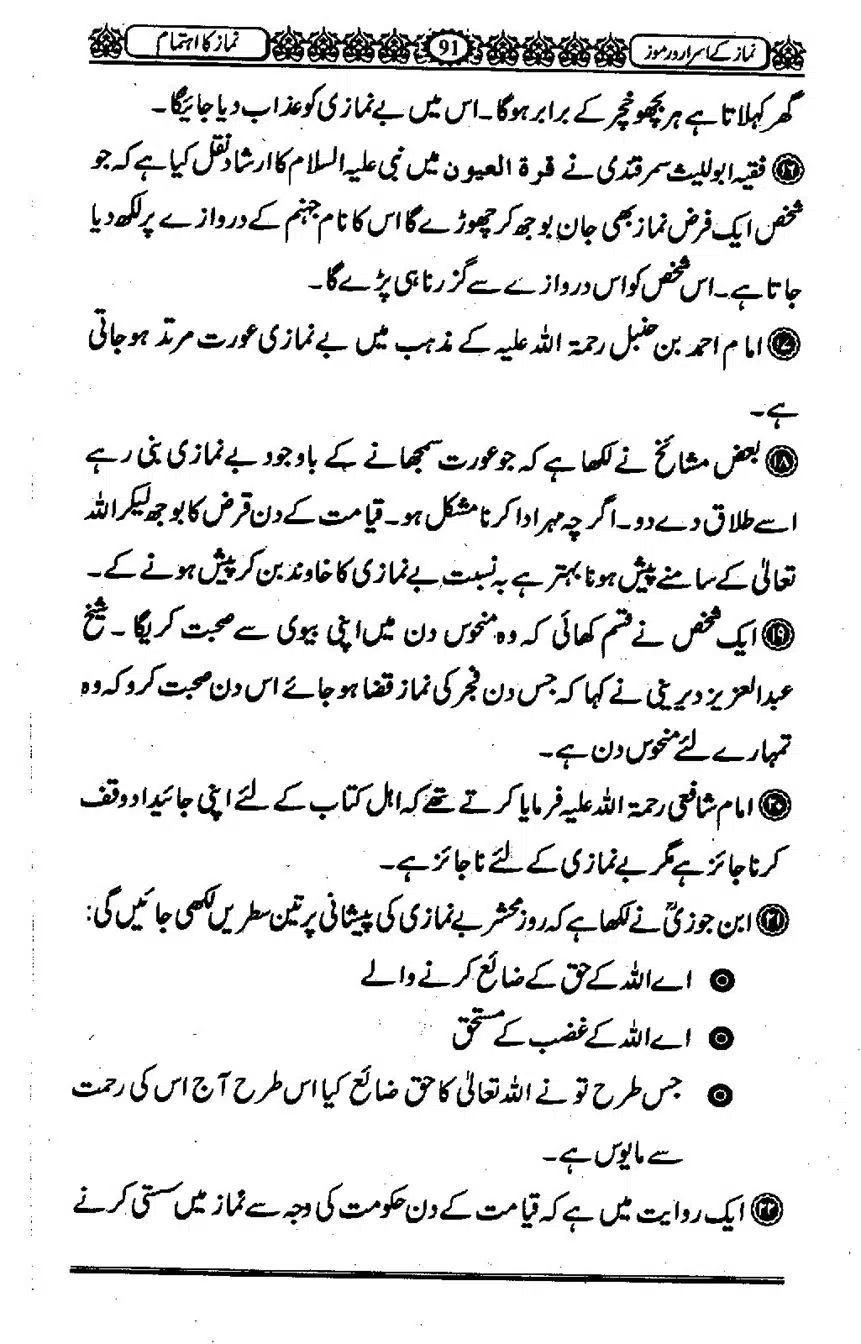 نماز کے اسرار و رموز 91 نماز کا اہتمام
گھر کہلاتا ہے ہر بچھو خچر کے برابر ہوگا۔ اس میں بے نمازی کو عذاب دیا جائیگا۔
⑯ فقیہ ابو للیث سمرقندی نے قرۃ العیون میں نبی علیہ السلام کا ارشاد نقل کیا ہے کہ جو
شخص ایک فرض نماز بھی جان بوجھ کر چھوڑے گا اس کا نام جہنم کے دروازے پر لکھ دیا
جاتا ہے۔ اس شخص کو اس دروازے سے گزرنا ہی پڑے گا۔
⑰ امام احمد بن حنبل رحمۃ اللہ علیہ کے مذہب میں بے نمازی عورت مرتد ہو جاتی
ہے۔
⑱ بعض مشائخ نے لکھا ہے کہ جو عورت سمجھانے کے باوجود بے نمازی بنی رہے
اسے طلاق دے دو۔ اگرچہ مہر ادا کرنا مشکل ہو۔ قیامت کے دن قرض کا بوجھ لیکر اللہ
تعالیٰ کے سامنے پیش ہونا بہتر ہے بہ نسبت بے نمازی کا خاوند بن کر پیش ہونے کے۔
⑲ ایک شخص نے قسم کھائی کہ وہ منحوس دن میں اپنی بیوی سے صحبت کریگا۔ شیخ
عبدالعزیز دیرینی نے کہا کہ جس دن فجر کی نماز قضا ہو جائے اس دن صحبت کرو کہ وہ
تمہارے لئے منحوس دن ہے۔
⑳ امام شافعی رحمۃ اللہ علیہ فرمایا کرتے تھے کہ اہل کتاب کے لئے اپنی جائیداد وقف
کرنا جائز ہے مگر بے نمازی کے لئے ناجائز ہے۔
㉑ ابن جوزیؒ نے لکھا ہے کہ روز محشر بے نمازی کی پیشانی پر تین سطریں لکھی جائیں گی:
◉ اے اللہ کے حق کے ضائع کرنے والے
◉ اے اللہ کے غضب کے مستحق
◉ جس طرح تو نے اللہ تعالیٰ کا حق ضائع کیا اس طرح آج اس کی رحمت
سے مایوس ہے۔
㉒ ایک روایت میں ہے کہ قیامت کے دن حکومت کی وجہ سے نماز میں سستی کرنے